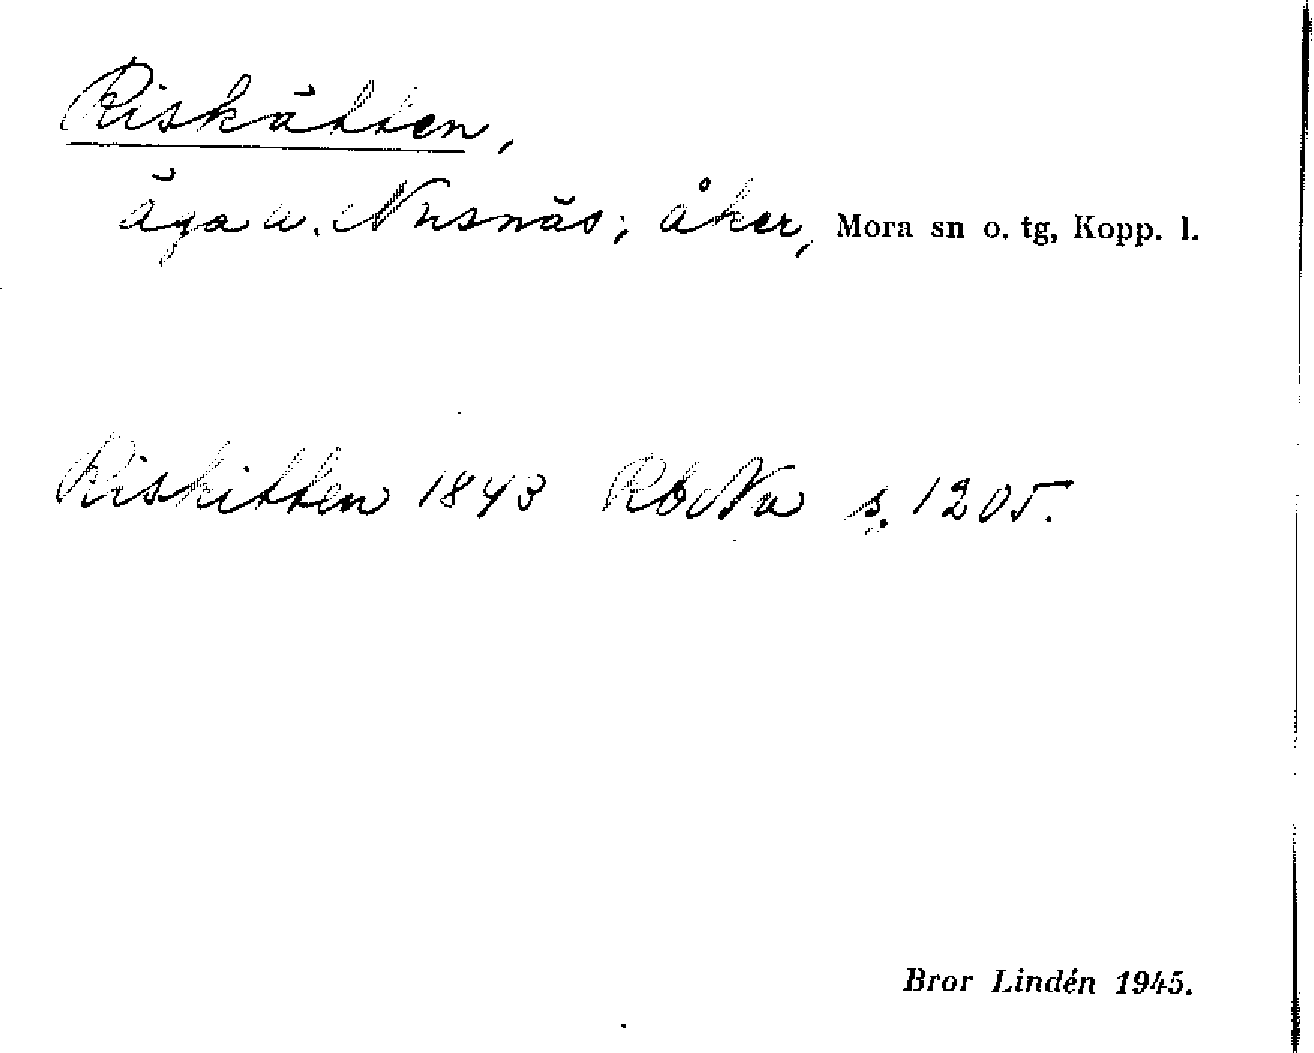 Riskätten,
äga u. Nusnäs; åker, Mora sn o. tg, Kopp. l.
Riskitten 1843 RbNu s. 1205.
Bror Lindén 1945.